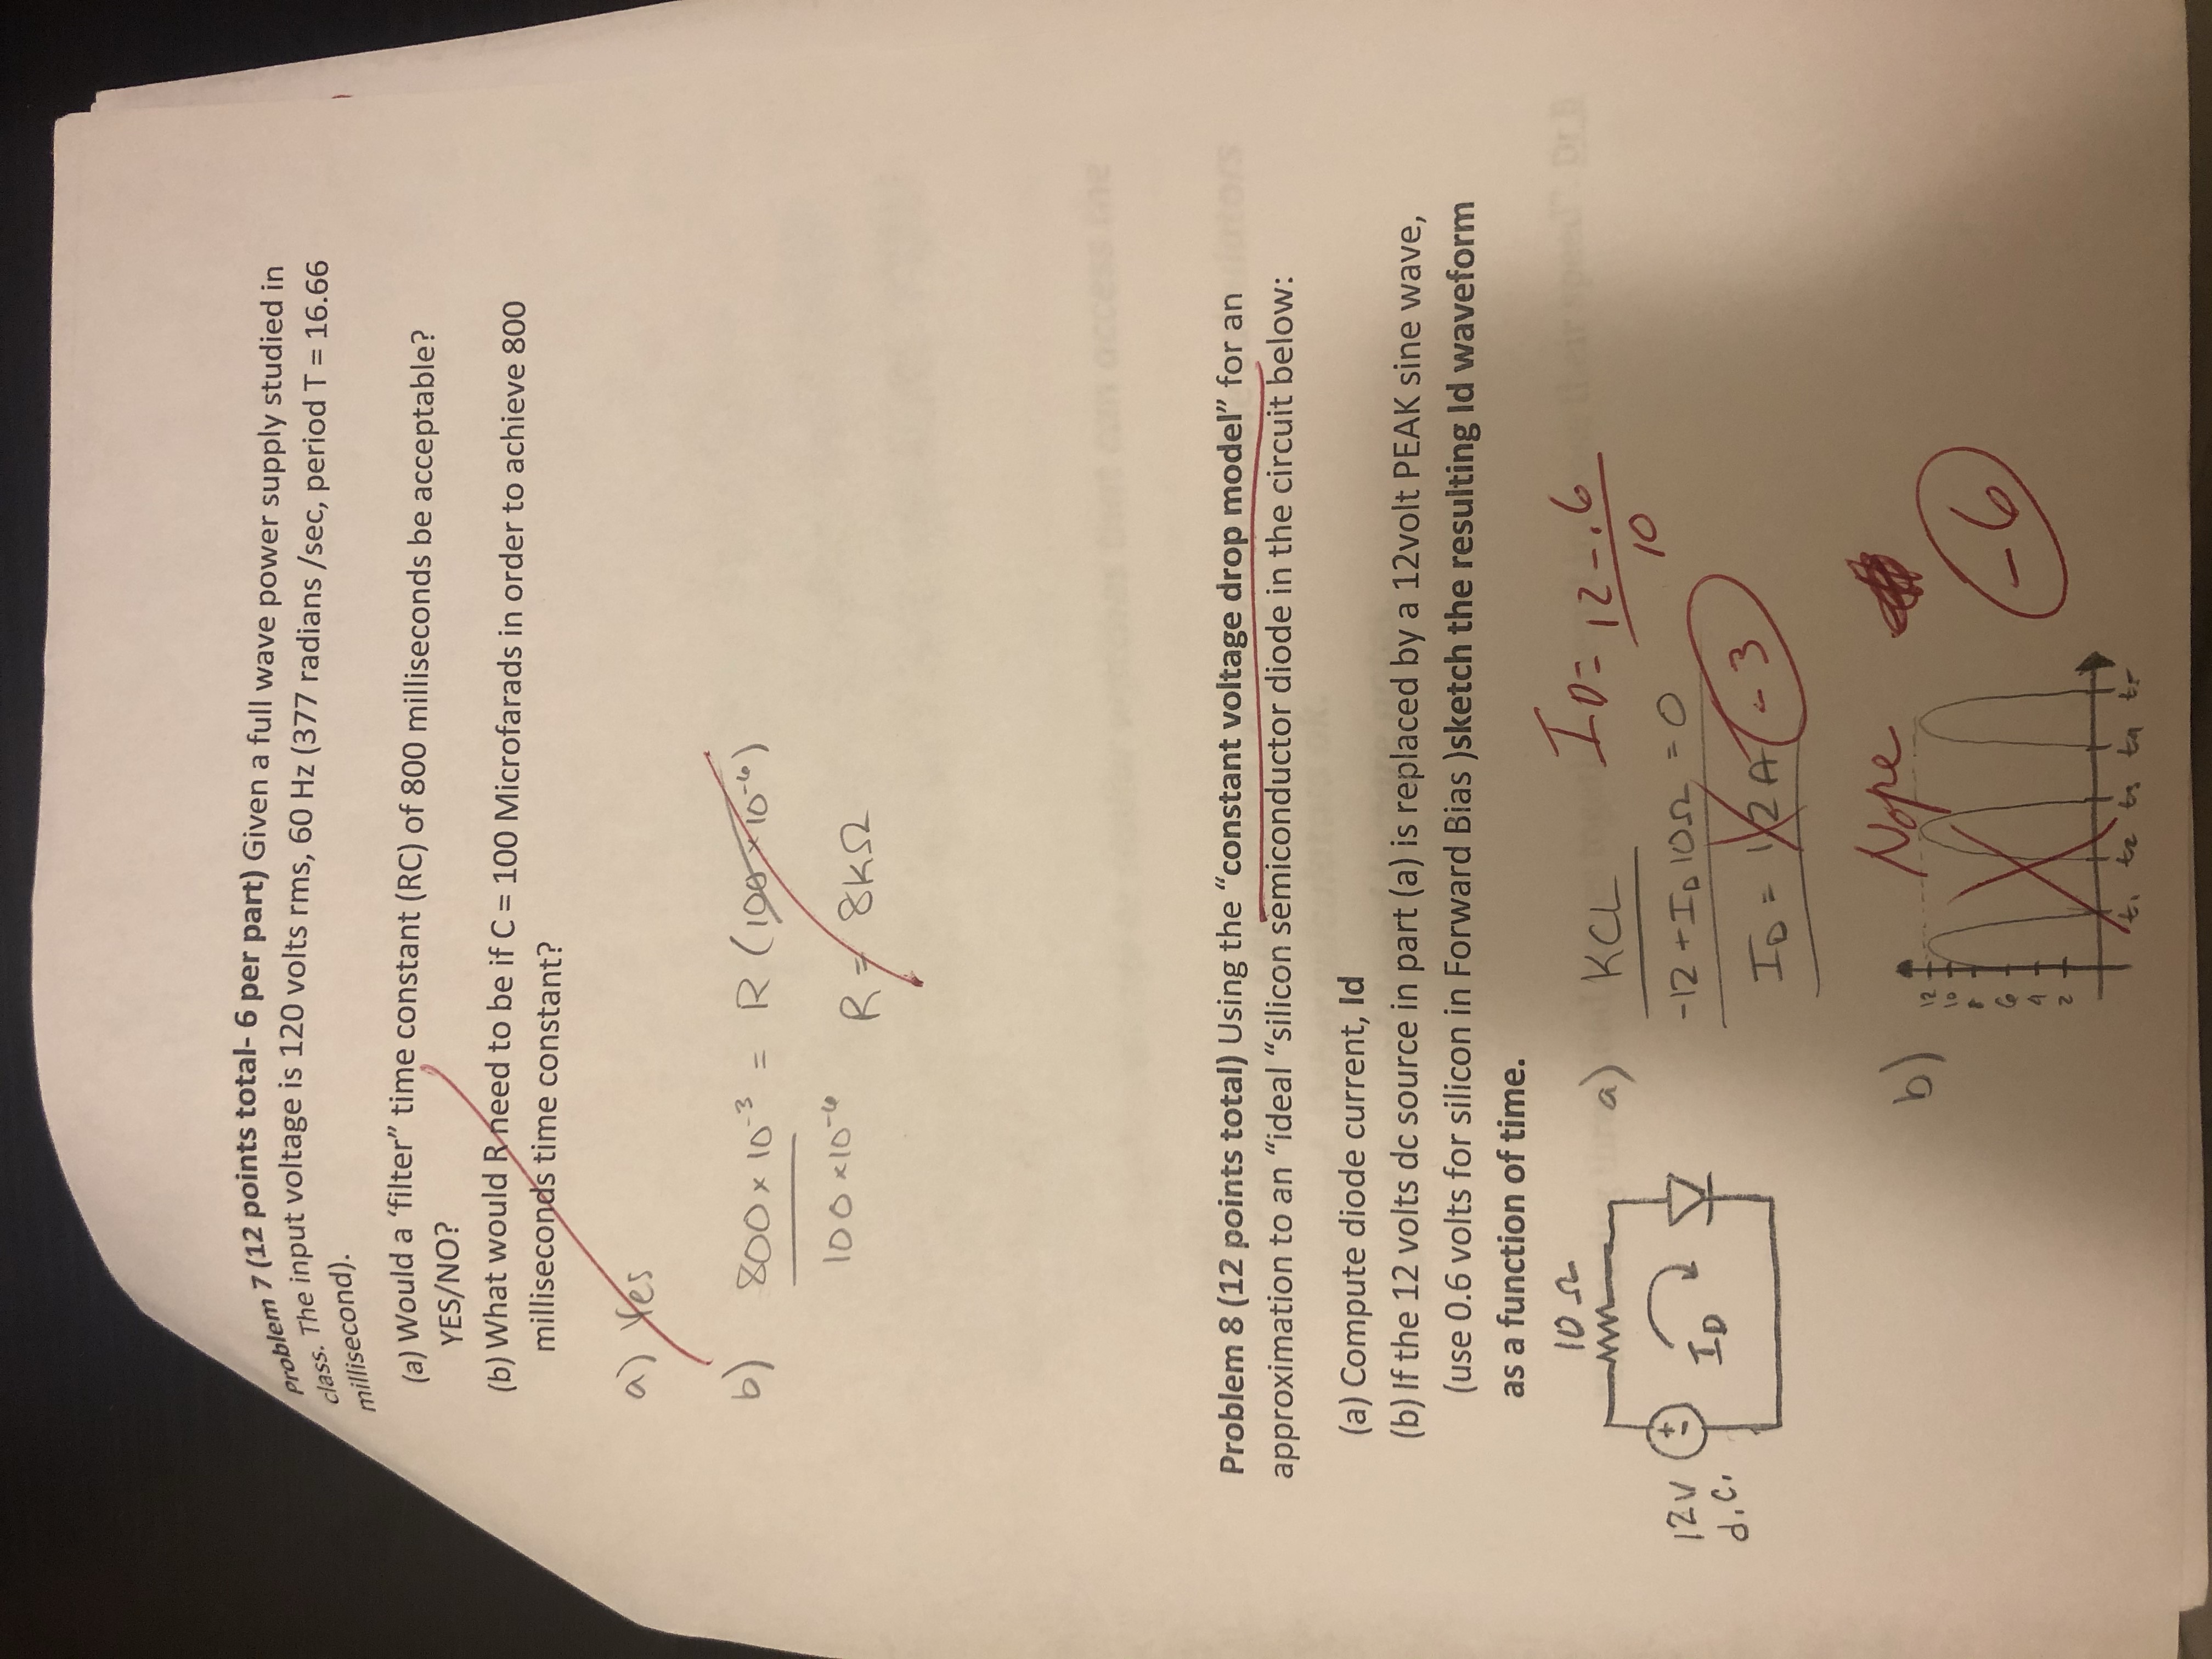 Problem 7 (12 points total- 6 per part) Given a full wave power supply studied in
class. The input voltage is 120 volts rms, 60 Hz (377 radians /sec, period T = 16.66
millisecond).
(a) Would a ‘filter” time constant (RC) of 800 milliseconds be acceptable?
YES/NO?
(b) What would R need to be if C = 100 Microfarads in order to achieve 800
milliseconds time constant?
a) Yes
b) 800 x 10^-3 = R (100 x 10^-6)
100 x10^-6
R = 8KΩ
that can access the
Problem 8 (12 points total) Using the “constant voltage drop model” for an
approximation to an “ideal “silicon semiconductor diode in the circuit below:
(a) Compute diode current, Id
(b) If the 12 volts dc source in part (a) is replaced by a 12volt PEAK sine wave,
(use 0.6 volts for silicon in Forward Bias )sketch the resulting Id waveform
as a function of time.
10 Ω
12V
d.c.
+
-
I_D
a) KCL
-12 + I_D 10Ω = 0
I_D = 1.2A
I_D = 12 - .6
10
-3
b)
Nope
12
10
8
6
4
2
t1 t2 t3 t4 t5
-6